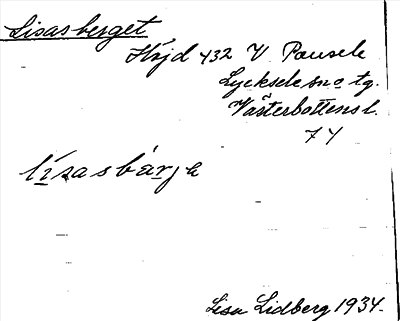 Lisasberget
Höjd 432 V. Pausele
Lycksele sn o tg.
Västerbottens l.
74
lisasbärje
Lisa Lidberg 1934.